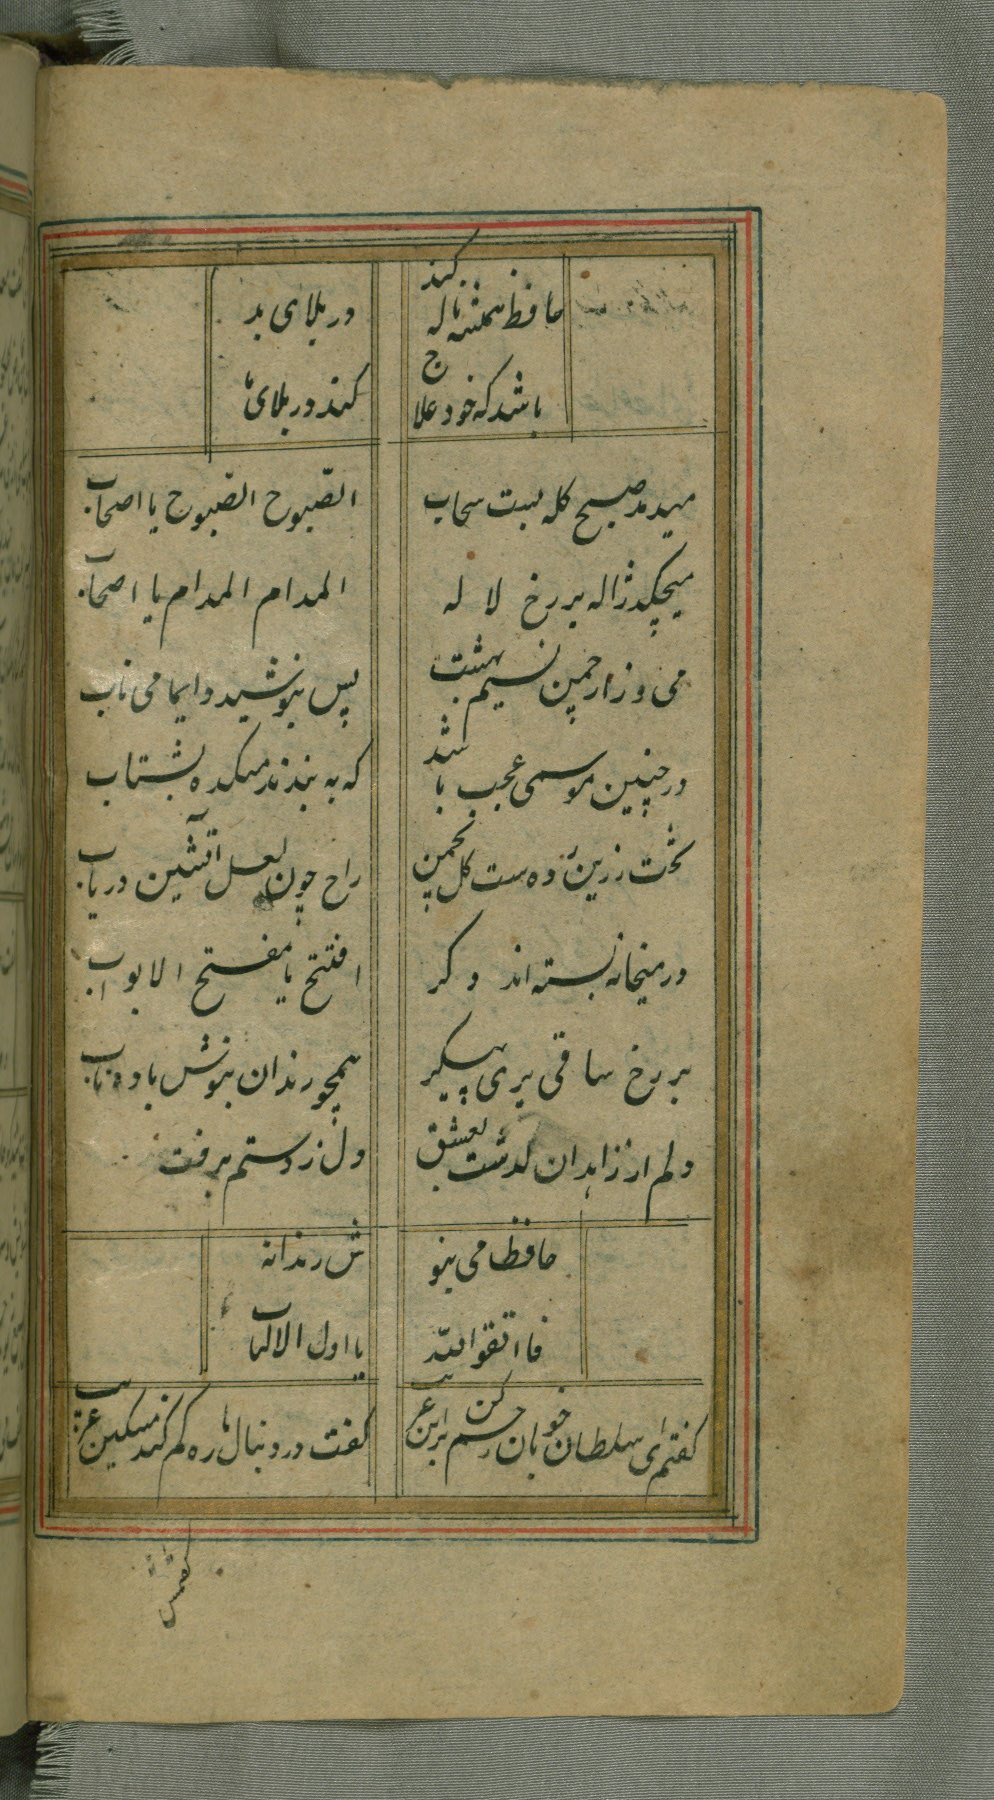 حافظ همیشه ناله کند در بلای بد
باشد که خود علاج کند در بلای ما
میدمد صبح کله بست سحاب الصّبوح الصّبوح یا اصحاب
میچکد ژاله بر رخ لا له المدام المدام یا اصحاب
می وزد از چمن نسیم بهشت پس بنوشید دایما می ناب
در چنین موسمی عجب باشد که به بندند میکده بشتاب
تخت زرین زده ست کل بچمن راح چون لعل آتشین دریاب
در میخانه بسته اند دکر افتتح یا مفتح الابواب
بر رخ ساقی پری پیکر همچو رندان بنوش باده ناب
دلم از زاهدان کدشت بعشق دل ز دستم برفت
حافظا می بنو ش رندانه
فاتقوا الله یا اول الالباب
کفتم ای سلطان خوبان رحم کن بر این غریب کفت در دنبال ما ره کم کند مسکین غریب
کفتمش